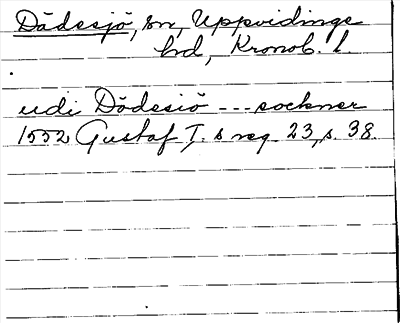 Dädesjö, sn, Uppvidinge
hd, Kronob. l.
udi Dödesiö --- sochner
1552 Gustaf I. s reg. 23, s. 38.